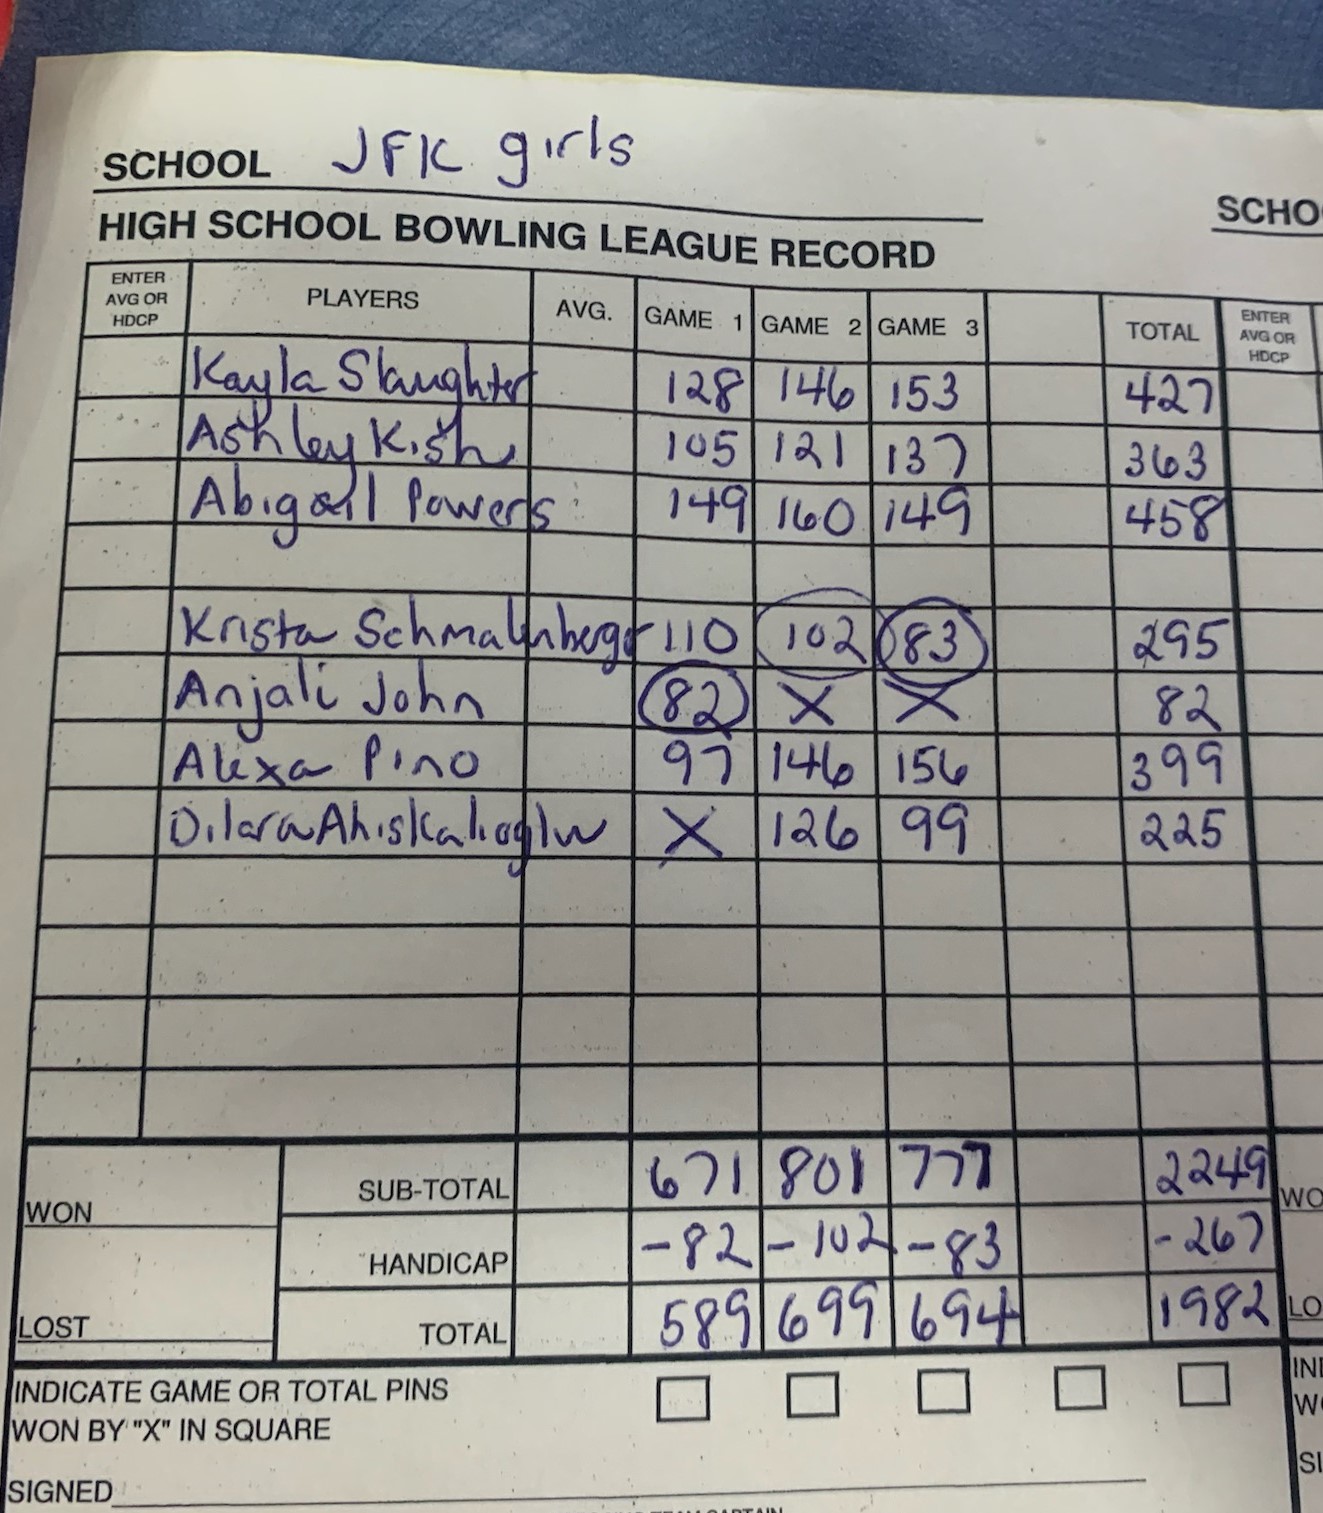 SCHOOL JFK girls
SCHO
HIGH SCHOOL BOWLING LEAGUE RECORD
ENTER AVG OR HDCP PLAYERS AVG. GAME 1 GAME 2 GAME 3 TOTAL ENTER AVG OR HDCP
Kayla Slaughter 128 146 153 427
Ashley Kish 105 121 137 363
Abigail Powers 149 160 149 458
Krista Schmalnberger 110 102 83 295
Anjali John 82 X X 82
Alexa Pino 97 146 156 399
Dilara Ahiskalioglu X 126 99 225
WON SUB-TOTAL 671 801 777 2249 WO
HANDICAP -82 -102 -83 -267
LOST TOTAL 589 699 694 1982 LO
INDICATE GAME OR TOTAL PINS IN
WON BY "X" IN SQUARE W
SIGNED SI